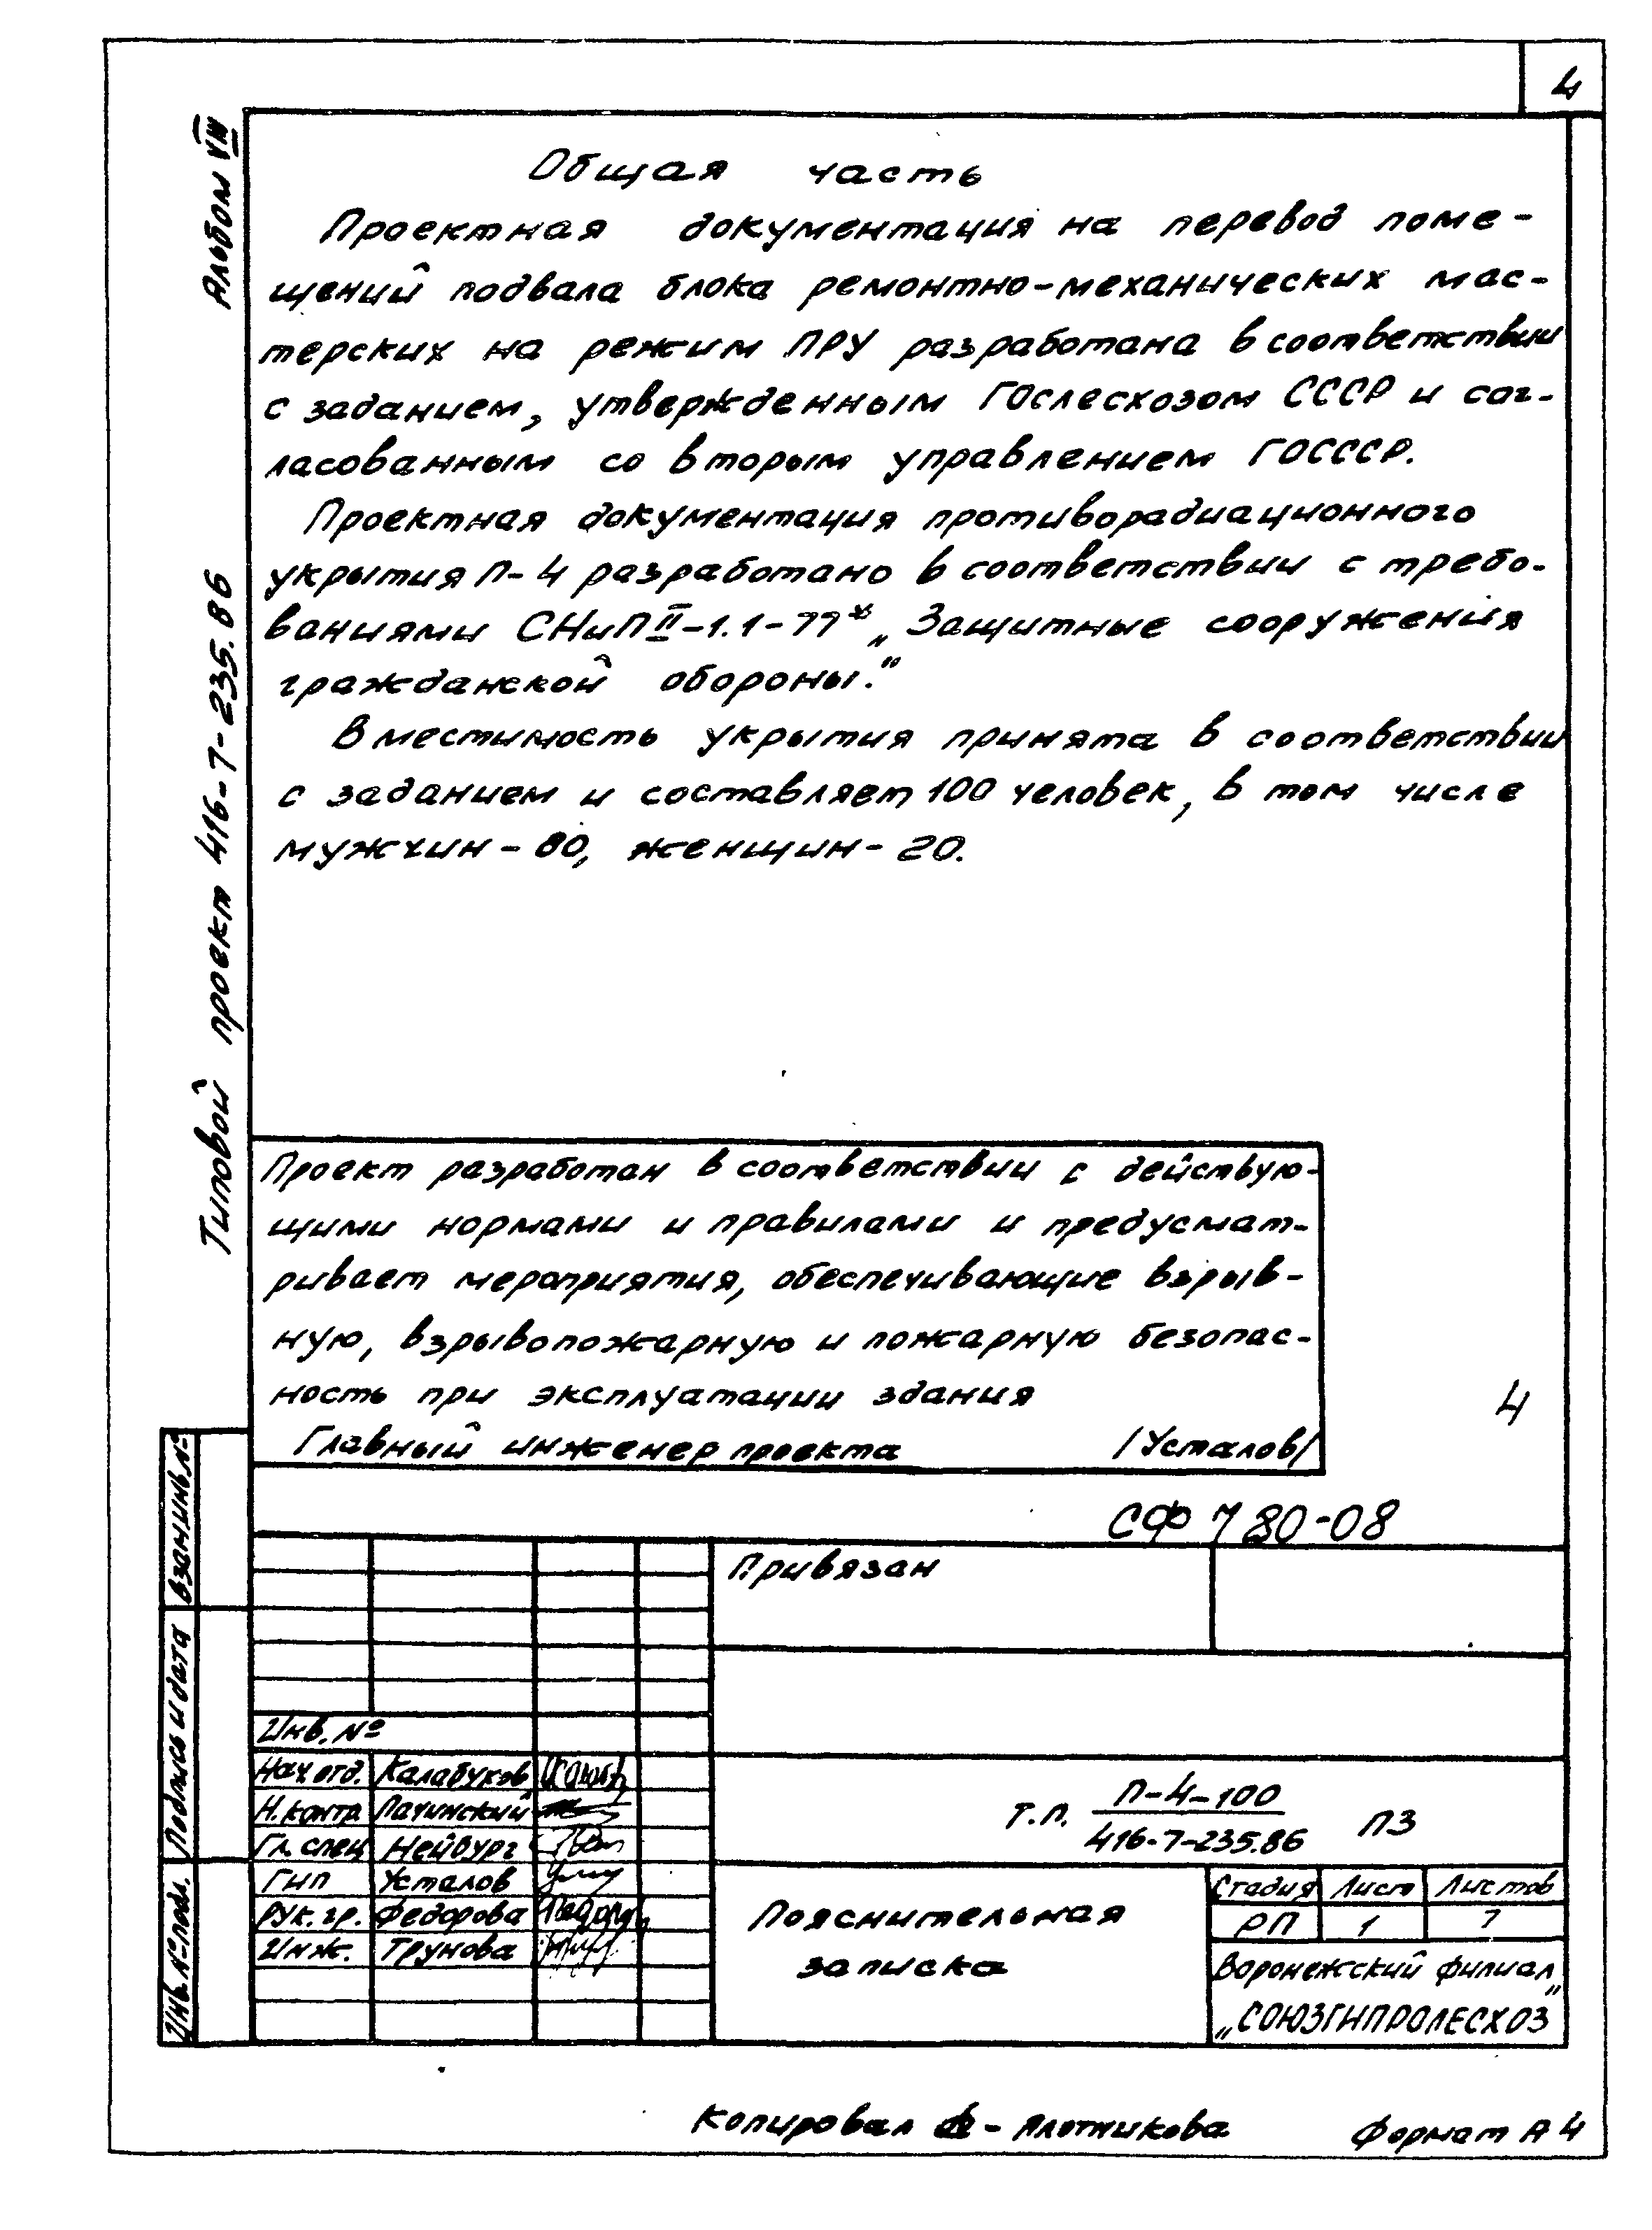 4
Альбом VIII
Типовой проект 416-7-235.86
Общая часть
Проектная документация на перевод поме-
щений подвала блока ремонтно-механических мас-
терских на режим ПРУ разработана в соответствии
с заданием, утвержденным Гослесхозом СССР и сог-
ласованным со вторым управлением ГОСССР.
Проектная документация противорадиационного
укрытия П-4 разработано в соответствии с требо-
ваниями СНиП II-1.1-77* „Защитные сооружения
гражданской обороны.“
Вместимость укрытия принята в соответствии
с заданием и составляет 100 человек, в том числе
мужчин - 80, женщин - 20.
Проект разработан в соответствии с действую-
щими нормами и правилами и предусмат-
ривает мероприятия, обеспечивающие взрыв-
ную, взрывопожарную и пожарную безопас-
ность при эксплуатации здания
Главный инженер проекта /Усталов/
4
СФ 780-08
Взам инв. №
Подпись и дата
Инв. № подл.
Привязан
Инв. №
Нач. отд. Калабуков
Н. контр Лачинский
Гл. спец Нейбург
ГИП Усталов
Рук. гр. Федорова
Инж. Трунова
Т.П. П-4-100 ПЗ
416-7-235.86
Пояснительная
записка
Стадия Лист Листов
РП 1 7
Воронежский филиал
„СОЮЗГИПРОЛЕСХОЗ“
Копировал - Плотникова Формат А4